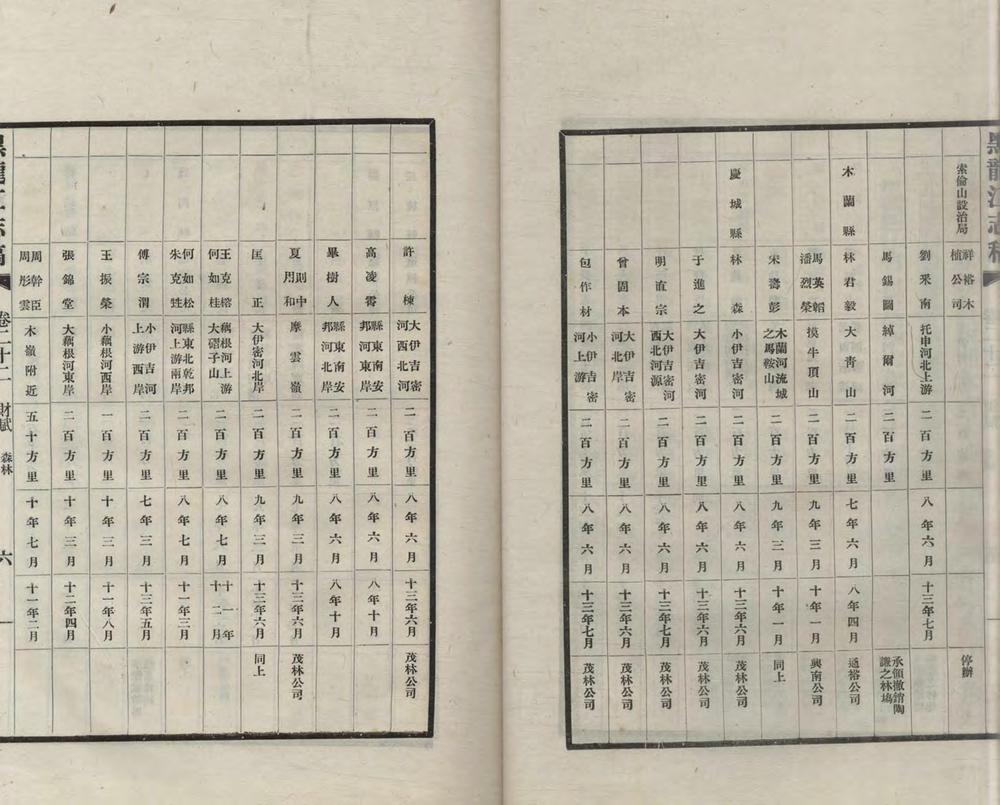 黑龍江志稿
索倫山設治局 祥裕木植公司 停辦
劉釆南 托申河北上游 二百方里 八年六月 十三年七月
馬錫圖 綽爾河 二百方里 承領撤銷陶謙之林場
木蘭縣 林君毅 大靑山 二百方里 七年六月 八年四月 通裕公司
馬英韜 潘烈榮 摸牛頂山 二百方里 九年三月 十年一月 興南公司
宋壽彭 木蘭河流域之馬鞍山 二百方里 九年三月 十年一月 同上
慶城縣 林森 小伊吉密河 二百方里 八年六月 十三年六月 茂林公司
于進之 大伊吉密河 二百方里 八年六月 十三年六月 茂林公司
明直宗 大伊吉密河西北河源 二百方里 八年六月 十三年七月 茂林公司
曾固本 大伊吉密河北岸 二百方里 八年六月 十三年六月 茂林公司
包作材 小伊吉密河上游 二百方里 八年六月 十三年七月 茂林公司
許棟 大伊吉密河西北河 二百方里 八年六月 十三年六月 茂林公司
高凌霄 縣東南安邦河東岸 二百方里 八年六月 八年十月
畢樹人 縣東南安邦河北岸 二百方里 八年六月 八年十月
夏則中 周和 摩雲嶺 二百方里 九年三月 十三年六月 茂林公司
匡正 大伊密河北岸 二百方里 九年三月 十三年六月 同上
王克榕 何如桂 藕根河上游大磖子山 二百方里 八年七月 十一年十二月
何如松 朱克甡 縣東北乾邦河上游兩岸 二百方里 八年七月 十一年三月
傅宗渭 小伊吉河上游西岸 二百方里 七年三月 十三年五月
王振榮 小藕根河西岸 一百方里 十年三月 十一年八月
張錦堂 大藕根河東岸 二百方里 十年三月 十二年四月
周幹臣 周彤雲 木嶺附近 五十方里 十年七月 十一年二月
黑龍江志稿 卷二十二 財賦 森林 六